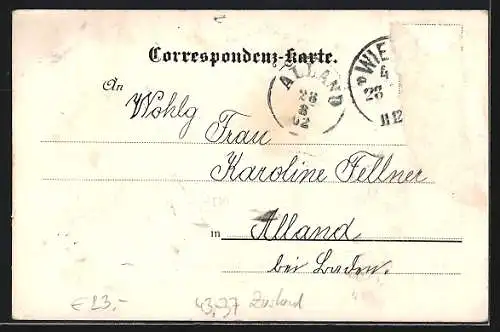 Correspondenz-Karte.
An
Wohlg
Frau
Karoline Fellner
in Alland
bei Baden.
ALLAND
28
8
02
WIE
4
23
II 12
€23,-
43,37 Zustand